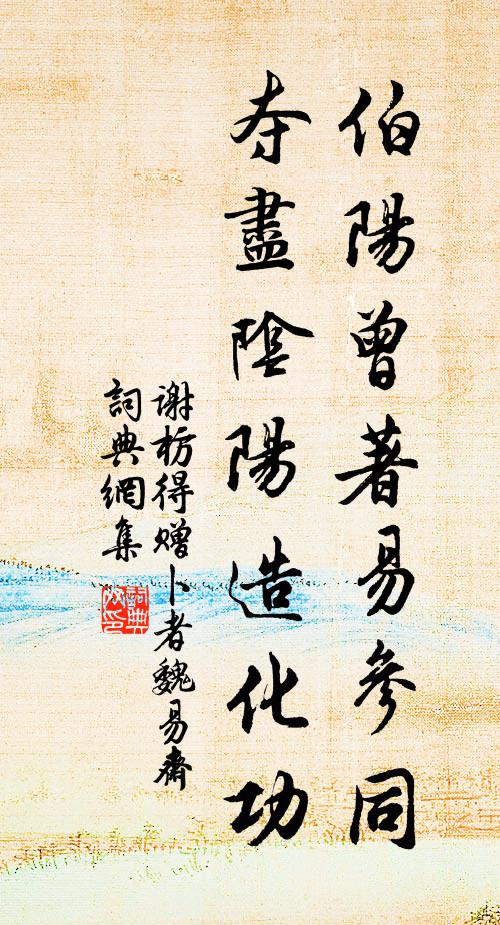 伯陽曾著易參同
夺盡陰陽造化功
謝枋得赠卜者魏易齋
詞典網集